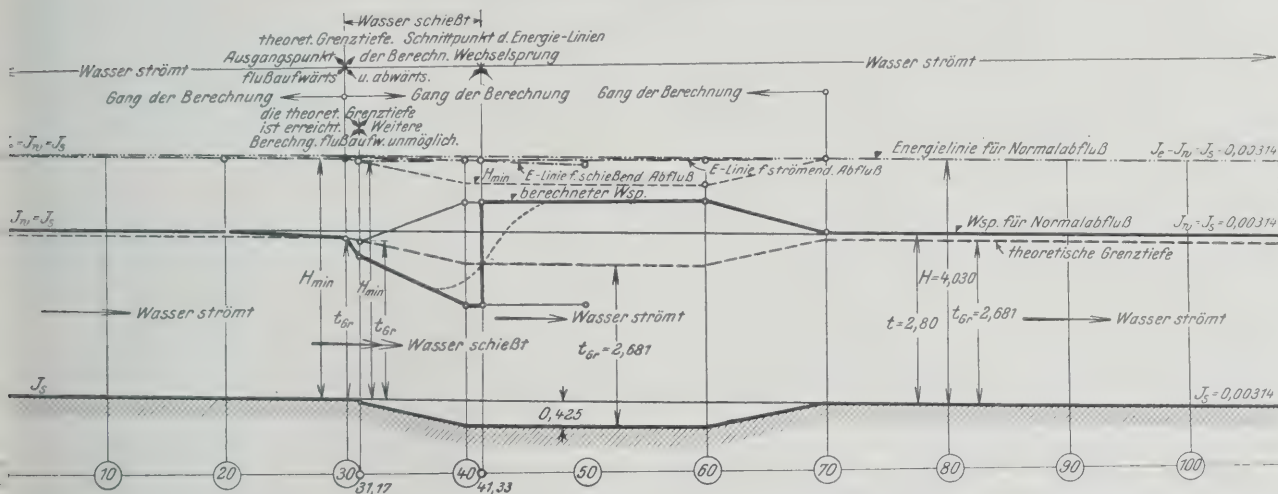 Wasser schießt
theoret. Grenztiefe. Schnittpunkt d. Energie-Linien
Ausgangspunkt der Berechn. Wechselsprung
flußaufwärts u. abwärts.
Wasser strömt
Wasser strömt
Gang der Berechnung
Gang der Berechnung
Gang der Berechnung
die theoret. Grenztiefe
ist erreicht. Weitere
Berechng. flußaufw. unmöglich.
= J_w = J_s
Energielinie für Normalabfluß
J_e = J_w = J_s = 0,00314
H_min
E-Linie f. schießend. Abfluß
E-Linie f. strömend. Abfluß
berechneter Wsp.
J_w = J_s
Wsp. für Normalabfluß
J_w = J_s = 0,00314
theoretische Grenztiefe
H_min
H_min
t_Gr
t_Gr
Wasser strömt
Wasser schießt
Wasser strömt
t_Gr = 2,681
H = 4,030
t = 2,80
t_Gr = 2,681
Wasser strömt
J_s
0,425
J_s = 0,00314
10
20
30
31,17
40
41,33
50
60
70
80
90
100